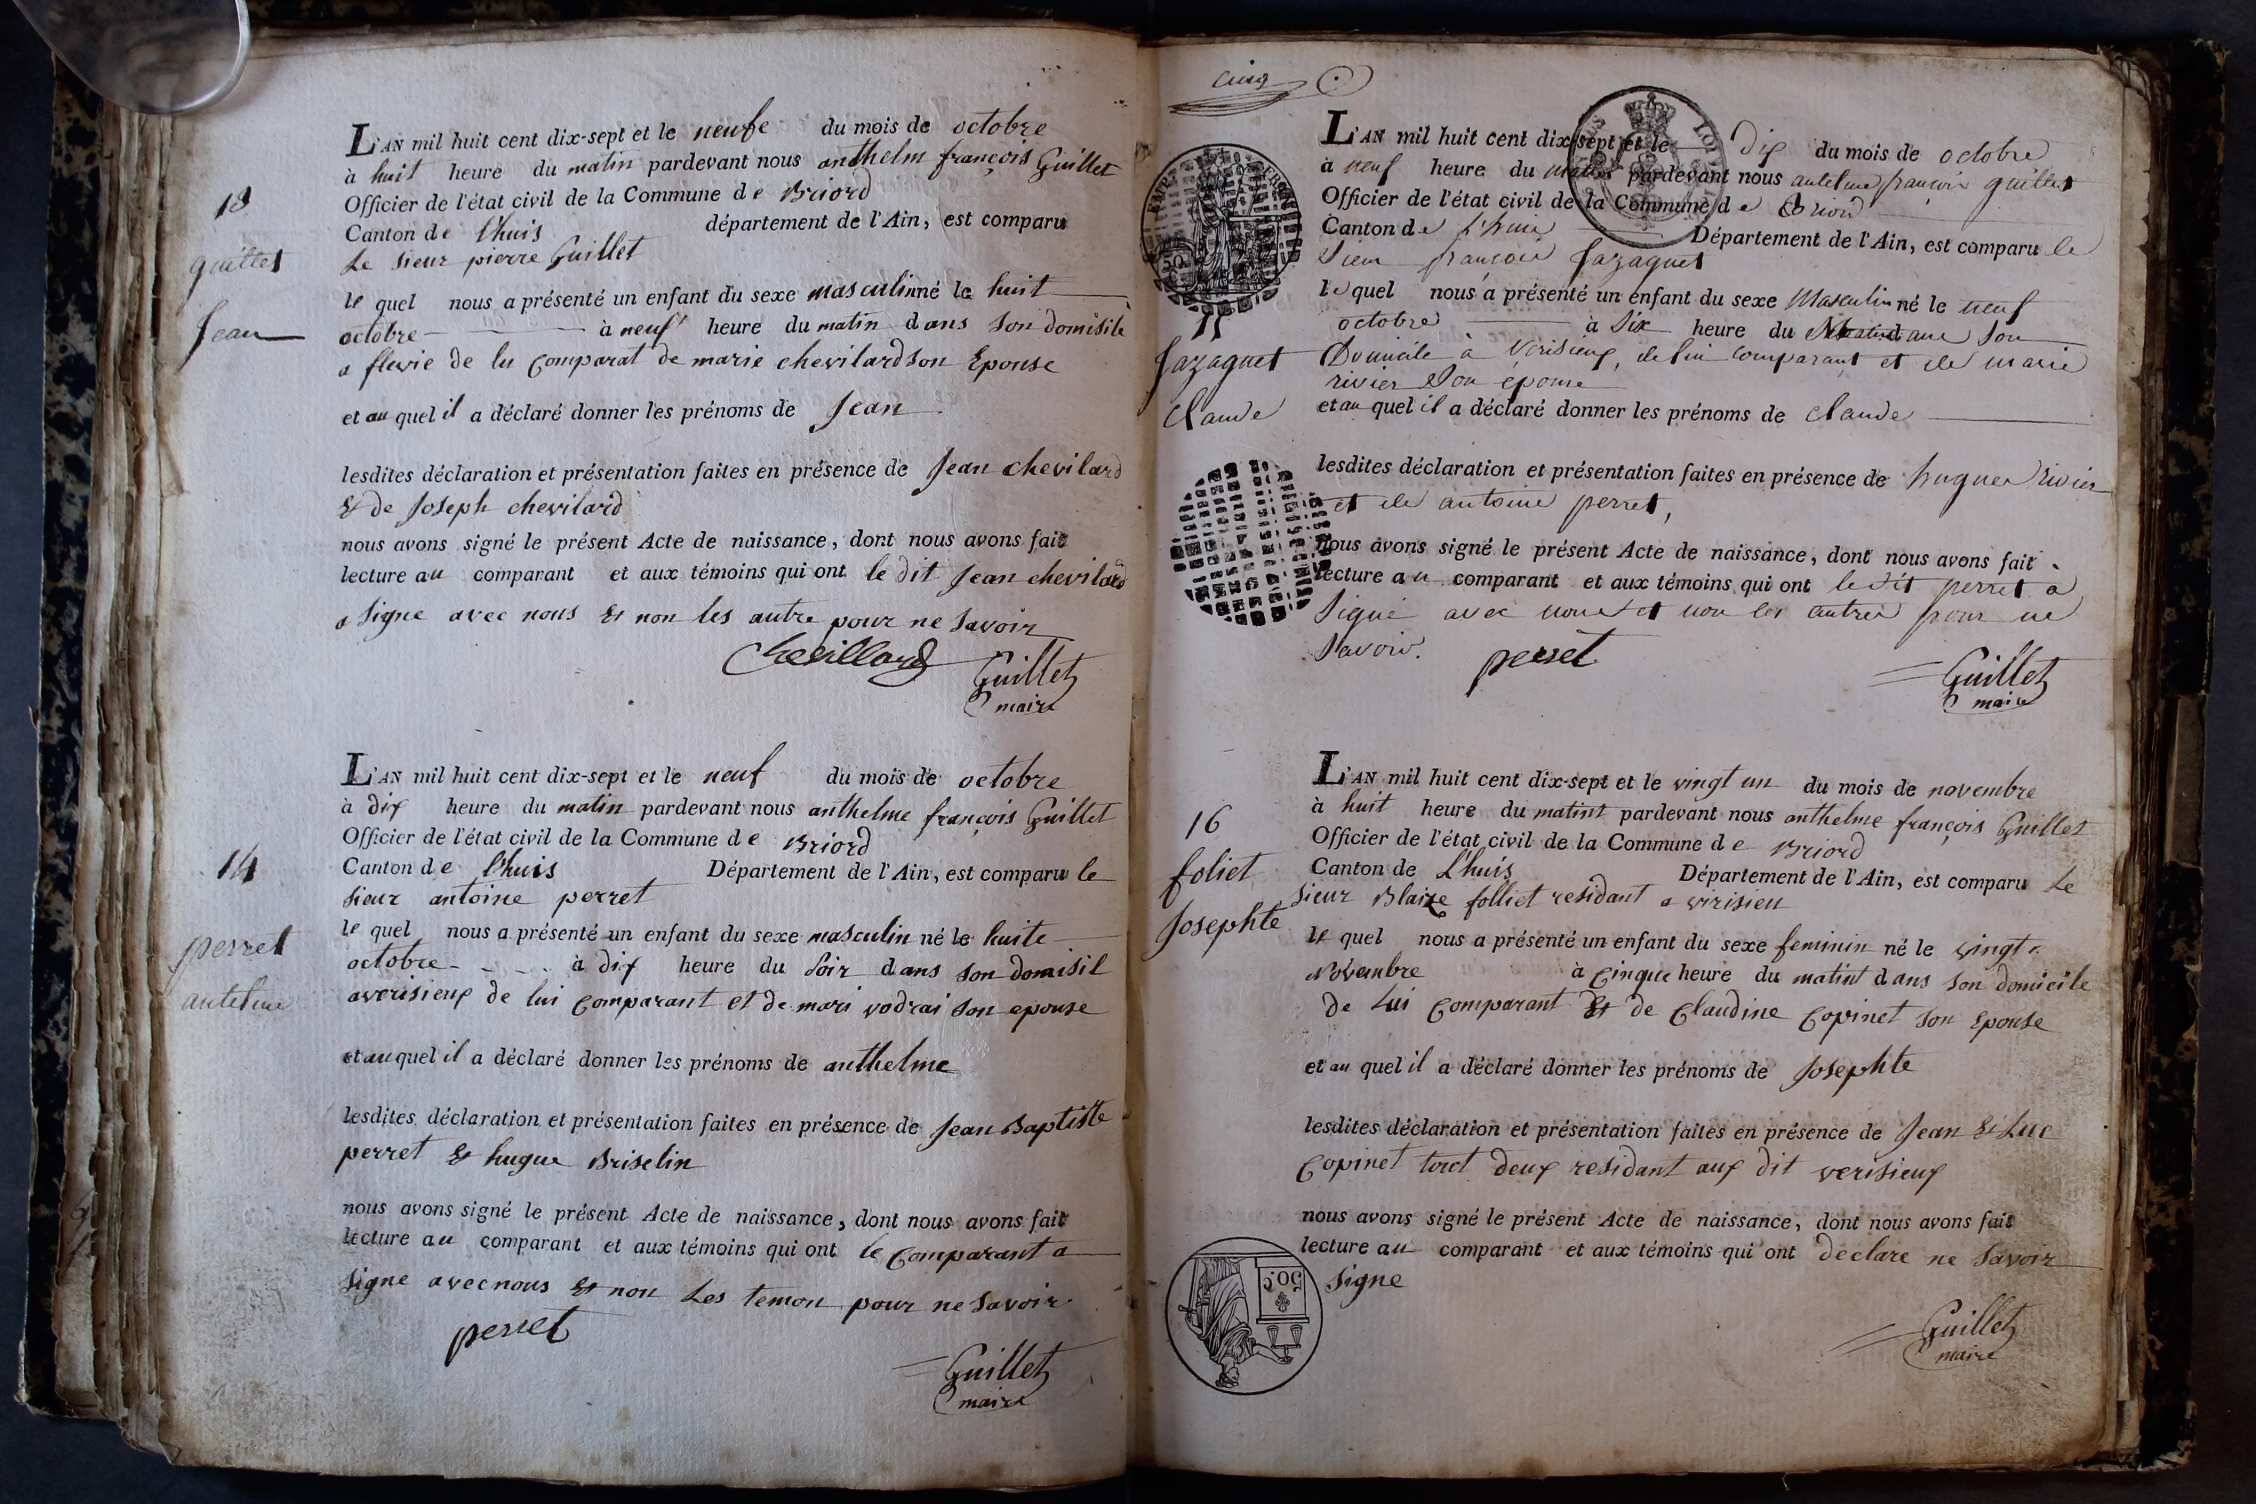 13
guillet
Jean
L'AN mil huit cent dix-sept et le neufe du mois de octobre
à huit heure du matin pardevant nous anthelm françois Guillet
Officier de l'état civil de la Commune de Briord
Canton de l'huis département de l'Ain, est comparu
Le sieur pierre Guillet
le quel nous a présenté un enfant du sexe masculin né le huit
octobre à neuf heure du matin dans son domisile
a flevie de lu comparat de marie chevilard son Epouse
et au quel il a déclaré donner les prénoms de Jean
lesdites déclaration et présentation faites en présence de Jean chevilard
Et de Joseph chevilard
nous avons signé le présent Acte de naissance, dont nous avons fait
lecture au comparant et aux témoins qui ont le dit Jean chevilard
a signe avec nous Et non les autre pour ne savoir
Chevillard
Guillet
maire
14
perret
antelme
L'AN mil huit cent dix-sept et le neuf du mois de octobre
à dix heure du matin pardevant nous anthelme françois Guillet
Officier de l'état civil de la Commune de Briord
Canton de l'huis Département de l'Ain, est comparu le
sieur antoine perret
le quel nous a présenté un enfant du sexe masculin né le huite
octobre à dix heure du soir dans son domisil
averisieux de lui comparant et de mari vodrai son epouse
et au quel il a déclaré donner les prénoms de anthelme
lesdites déclaration et présentation faites en présence de Jean Baptiste
perret Et hugue Briselin
nous avons signé le présent Acte de naissance, dont nous avons fait
lecture au comparant et aux témoins qui ont le comparant a
signe avec nous Et non Les temon pour ne savoir
perret
Guillet
maire
cinq
15
fazaguet
claude
L'AN mil huit cent dix-sept et le Dix du mois de octobre
à neuf heure du matin pardevant nous antelme françois guillet
Officier de l'état civil de la Commune de Briord
Canton de l'huis Département de l'Ain, est comparu le
sieur françois fazaguet
le quel nous a présenté un enfant du sexe Masculin né le neuf
octobre à Six heure du Matin dans son
Domicile à Verisieux, de lui comparant et de marie
rivier Son épouse
et au quel il a déclaré donner les prénoms de claude
lesdites déclaration et présentation faites en présence de hugues rivier
et de antoine perret,
nous avons signé le présent Acte de naissance, dont nous avons fait
lecture au comparant et aux témoins qui ont ledit perret a
Signé avec nous et non les autres pour ne
savoir.
perret
Guillet
maire
16
foliet
Josephte
L'AN mil huit cent dix-sept et le vingt un du mois de novembre
à huit heure du matint pardevant nous anthelme françois Guillet
Officier de l'état civil de la Commune de Briord
Canton de L'huis Département de l'Ain, est comparu Le
sieur Blaize folliet residant a virisieu
le quel nous a présenté un enfant du sexe feminin né le vingt
Novembre à cinque heure du matint dans son domicile
de Lui comparant Et de Claudine Copinet son Epouse
et au quel il a déclaré donner les prénoms de Josephte
lesdites déclaration et présentation faites en présence de Jean Et Luc
Copinet tout deux residant aux dit verisieux
nous avons signé le présent Acte de naissance, dont nous avons fait
lecture au comparant et aux témoins qui ont declare ne savoir
signe
50.c
Guillet
maire